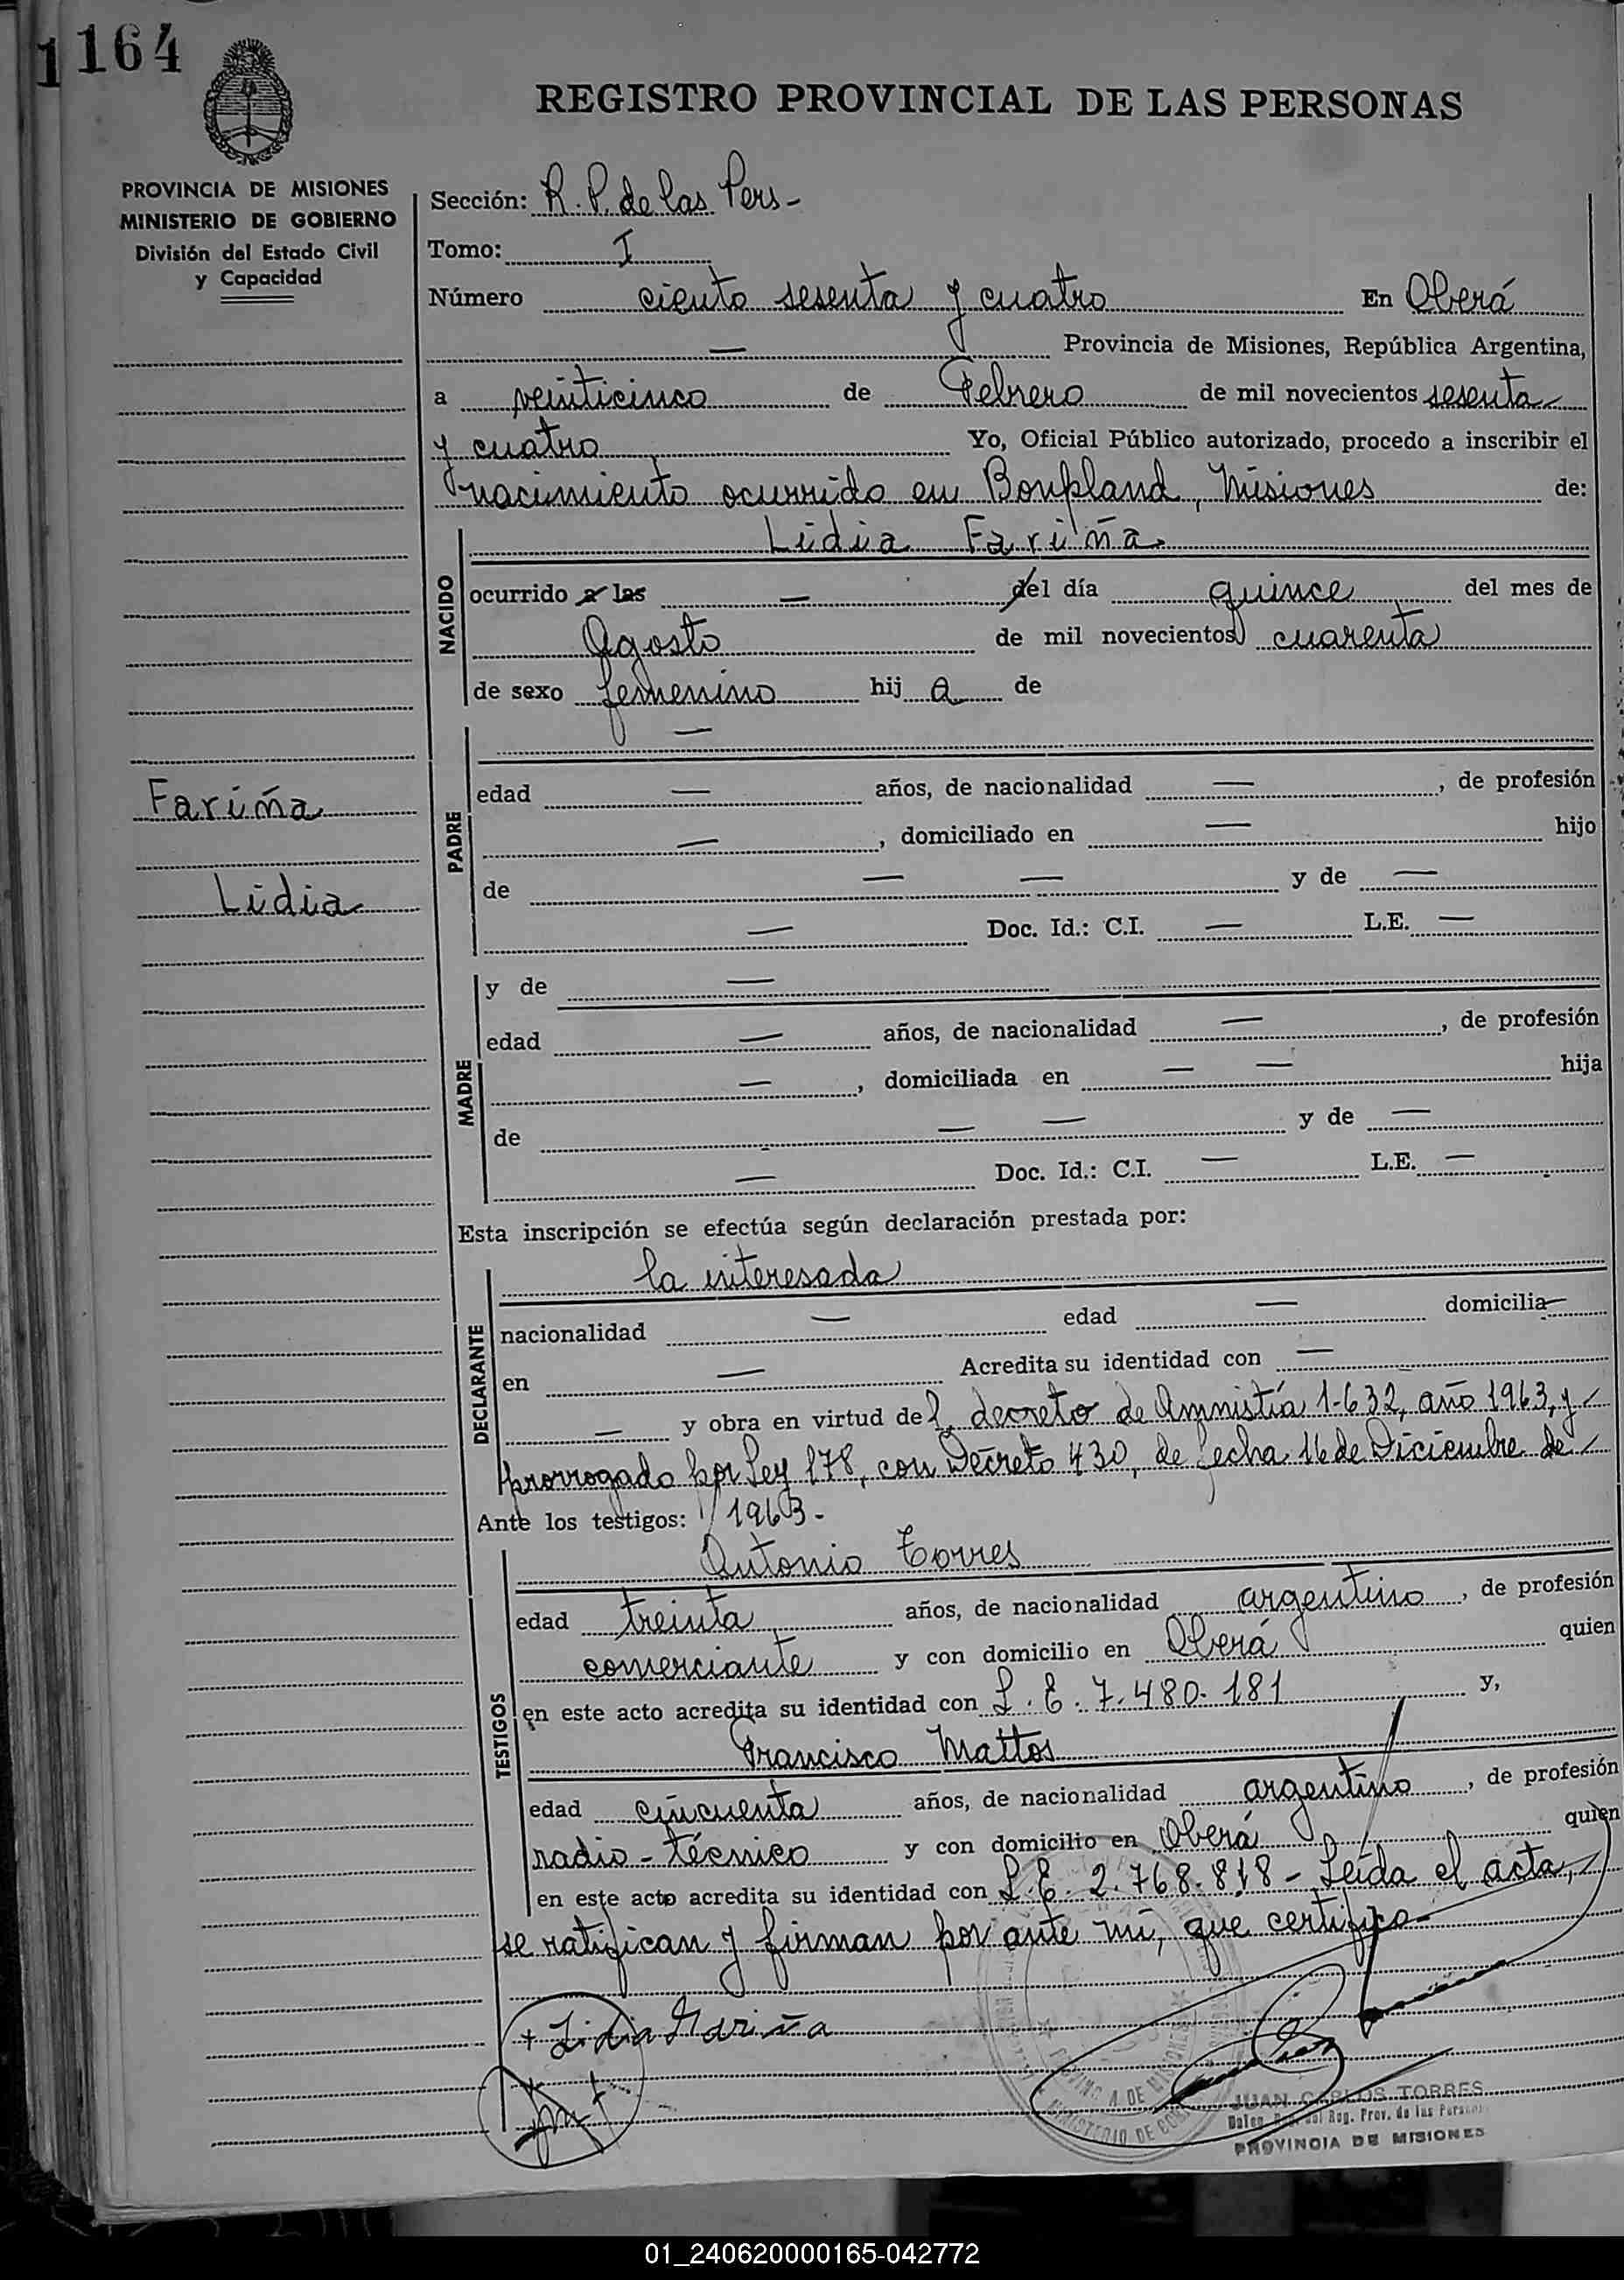 1164
REGISTRO PROVINCIAL DE LAS PERSONAS
PROVINCIA DE MISIONES
MINISTERIO DE GOBIERNO
División del Estado Civil
y Capacidad
Sección: R. P. de las Pers-
Tomo: I
Número ciento sesenta y cuatro En Oberá
— Provincia de Misiones, República Argentina,
a veinticinco de Febrero de mil novecientos sesenta
y cuatro Yo, Oficial Público autorizado, procedo a inscribir el
nacimiento ocurrido en Bonpland, Misiones de:
NACIDO
Lidia Fariña
ocurrido a las — del día quince del mes de
Agosto de mil novecientos cuarenta
de sexo femenino hij a de
Fariña
Lidia
PADRE
—
edad — años, de nacionalidad —, de profesión
—, domiciliado en — hijo
de — — y de —
— Doc. Id.: C.I. — L.E. —
MADRE
y de —
edad — años, de nacionalidad —, de profesión
—, domiciliada en — — hija
de — — y de —
— Doc. Id.: C.I. — L.E. —
Esta inscripción se efectúa según declaración prestada por:
DECLARANTE
la interesada
nacionalidad — edad — domicilia—
en — Acredita su identidad con —
— y obra en virtud del decreto de Amnistía 1.632, año 1963, y
prorrogado por Ley 178, con Decreto 430, de fecha 16 de Diciembre de
Ante los testigos: 1963.-
TESTIGOS
Antonio Torres
edad treinta años, de nacionalidad argentino, de profesión
comerciante y con domicilio en Oberá quien
en este acto acredita su identidad con L. E. 7.480.181 y,
Francisco Mattos
edad cincuenta años, de nacionalidad argentino, de profesión
radio-técnico y con domicilio en Oberá quien
en este acto acredita su identidad con L. E. 2.768.818 - Leída el acta,
se ratifican y firman por ante mí, que certifico.-
+ Lidia Fariña
JUAN CARLOS TORRES
Reg. Prov. de las Personas
PROVINCIA DE MISIONES
01_240620000165-042772